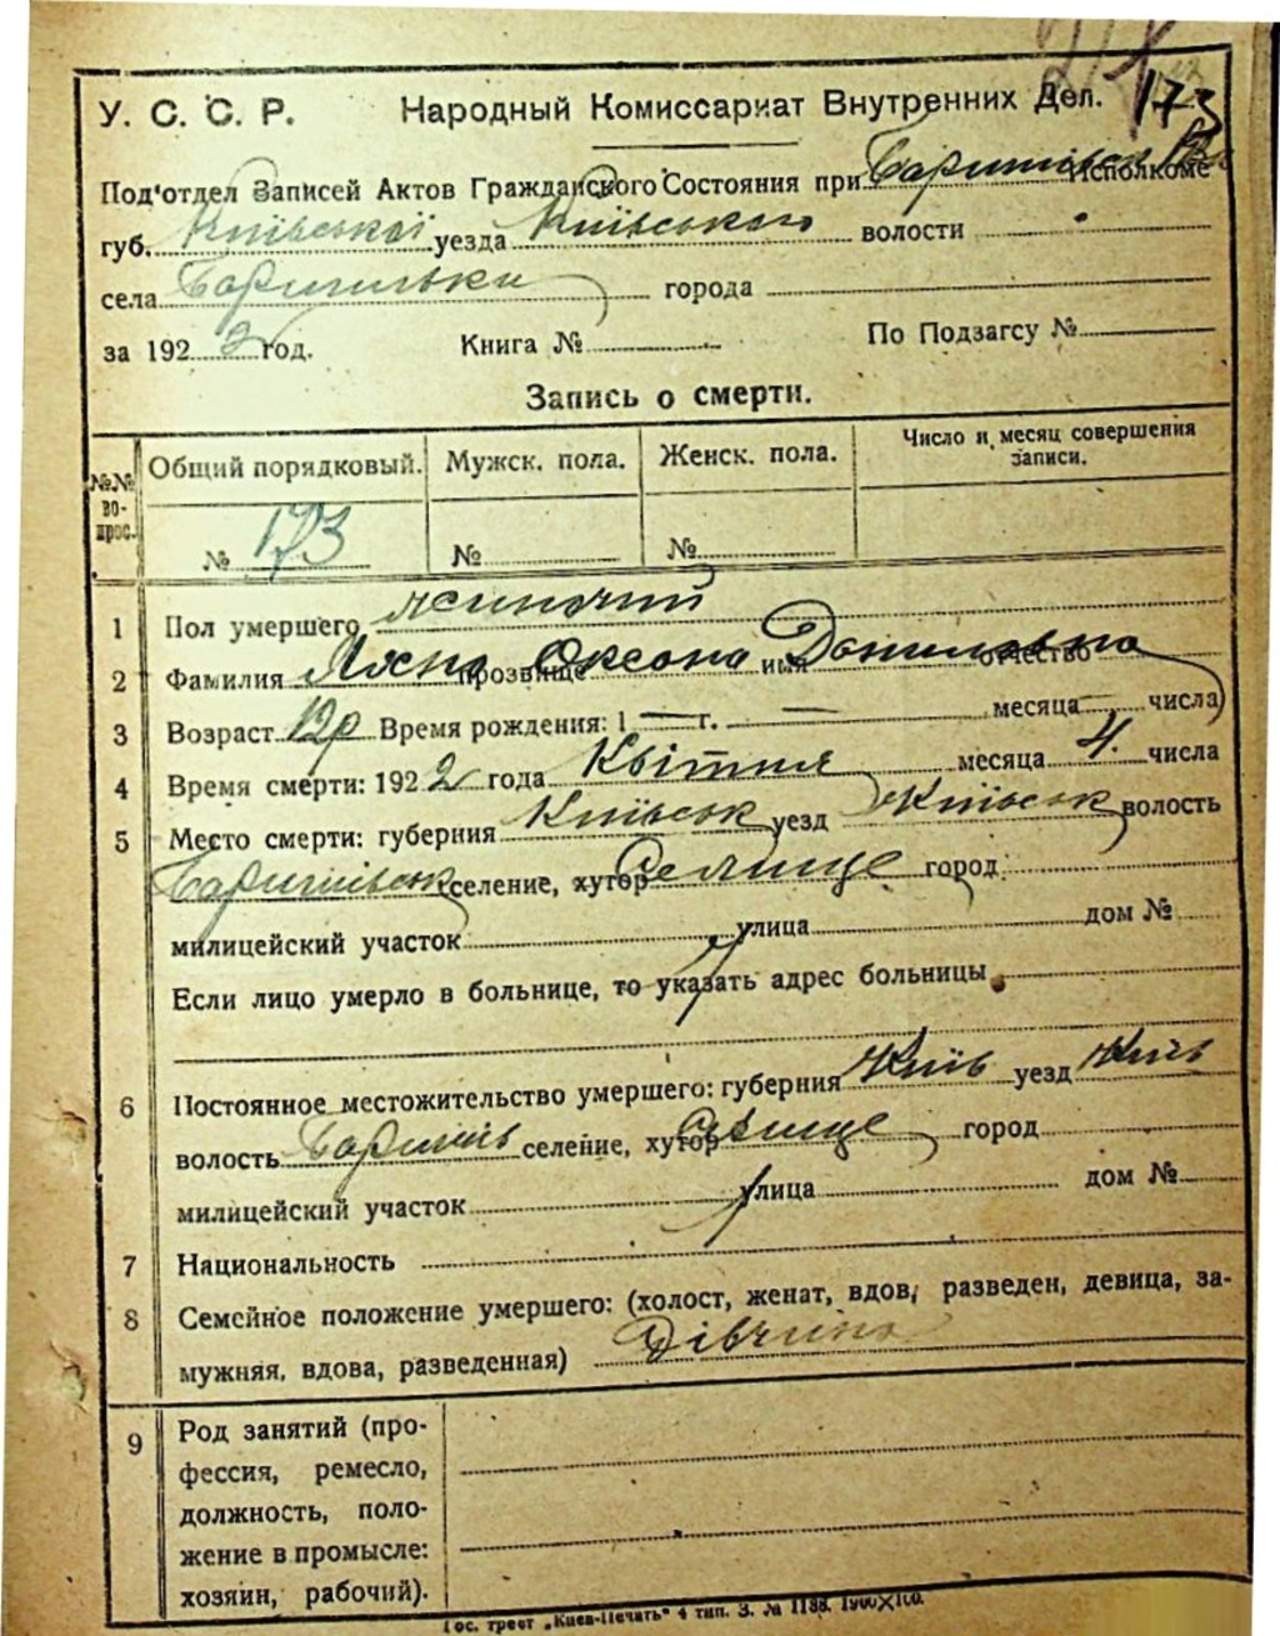 173
У. С. С. Р. Народный Комиссариат Внутренних Дел.
Под'отдел Записей Актов Гражданского Состояния при Исполкоме
губ. Київської уезда Київського волости
села города
за 1922 год. Книга № По Подзагсу №
Запись о смерти.
№№ во-прос. Общий порядковый. Мужск. пола. Женск. пола. Число и месяц совершения записи.
№ 173 № №
1 Пол умершего жиночий
2 Фамилия прозвище Оксана имя Даниловна отчество
3 Возраст 12 р Время рождения: 1 — г. — месяца — числа
4 Время смерти: 1922 года Квітня месяца 4. числа
5 Место смерти: губерния Київськ уезд Київськ волость
селение, хутор Селище город
милицейский участок улица дом №
Если лицо умерло в больнице, то указать адрес больницы
6 Постоянное местожительство умершего: губерния Київ уезд Київ
волость селение, хутор Селище город
милицейский участок улица дом №
7 Национальность
8 Семейное положение умершего: (холост, женат, вдов, разведен, девица, за-
мужняя, вдова, разведенная) Дівчина
9 Род занятий (про-
фессия, ремесло,
должность, поло-
жение в промысле:
хозяин, рабочий).
Гос. трест „Киев-Печать" 4 тип. З. № 1188. 1900×100.